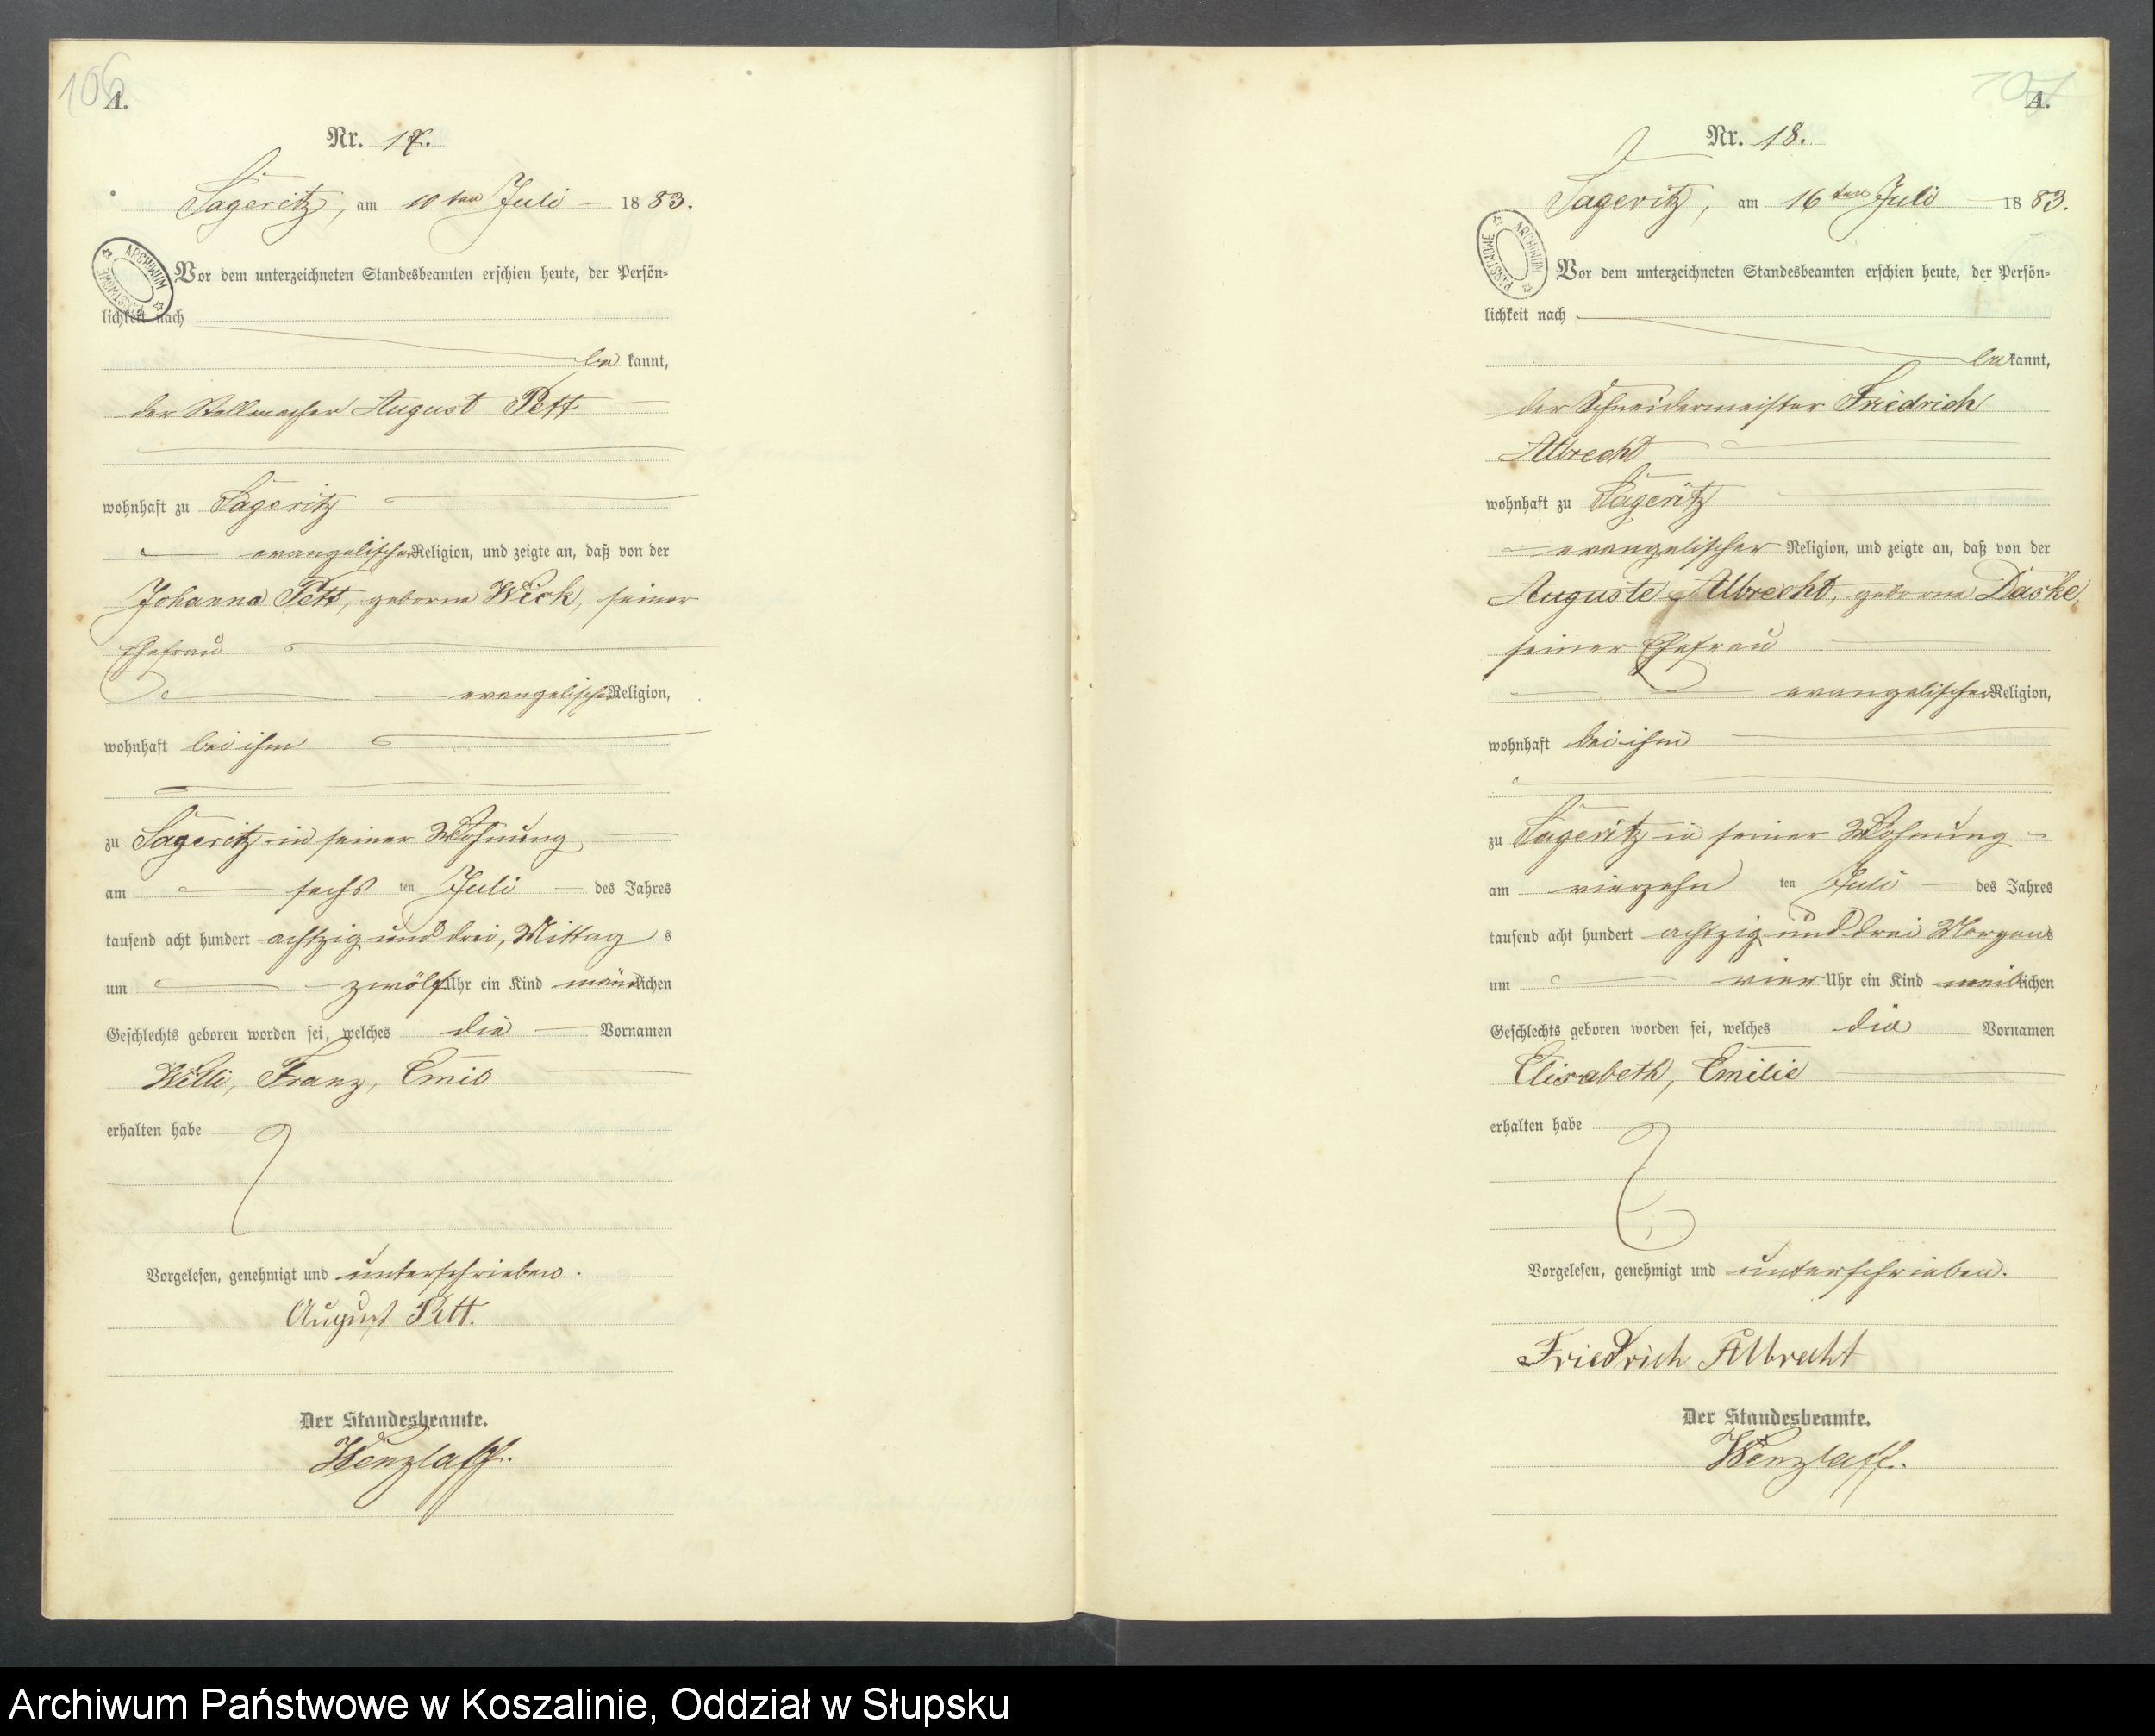 106
A.
Nr. 17.
Sageritz, am 10ten Juli 1883.
ARCHIWUM PAŃSTWOWE
Vor dem unterzeichneten Standesbeamten erschien heute, der Persön=
lichkeit nach
be kannt,
der Stellmacher August Pett
wohnhaft zu Sageritz
evangelischer Religion, und zeigte an, daß von der
Johanna Pett, geborne Wick, seiner
Ehefrau
evangelischer Religion,
wohnhaft bei ihm
zu Sageritz in seiner Wohnung
am sechs ten Juli des Jahres
tausend acht hundert achtzig und drei, Mittag s
um zwölf Uhr ein Kind männlichen
Geschlechts geboren worden sei, welches die Vornamen
Willi, Franz, Emil
erhalten habe
Vorgelesen, genehmigt und unterschrieben.
August Pett.
Der Standesbeamte.
Wenzlaff.
107
A.
Nr. 18.
Sageritz, am 16ten Juli 1883.
ARCHIWUM PAŃSTWOWE
Vor dem unterzeichneten Standesbeamten erschien heute, der Persön=
lichkeit nach
bekannt,
der Schneidermeister Friedrich
Albrecht
wohnhaft zu Sageritz
evangelischer Religion, und zeigte an, daß von der
Auguste Albrecht, geborne Daske,
seiner Ehefrau
evangelischer Religion,
wohnhaft bei ihm
zu Sageritz in seiner Wohnung
am vierzehn ten Juli des Jahres
tausend acht hundert achtzig und drei Morgens
um vier Uhr ein Kind weiblichen
Geschlechts geboren worden sei, welches die Vornamen
Elisabeth, Emilie
erhalten habe
Vorgelesen, genehmigt und unterschrieben.
Friedrich Albrecht
Der Standesbeamte.
Wenzlaff.
Archiwum Państwowe w Koszalinie, Oddział w Słupsku